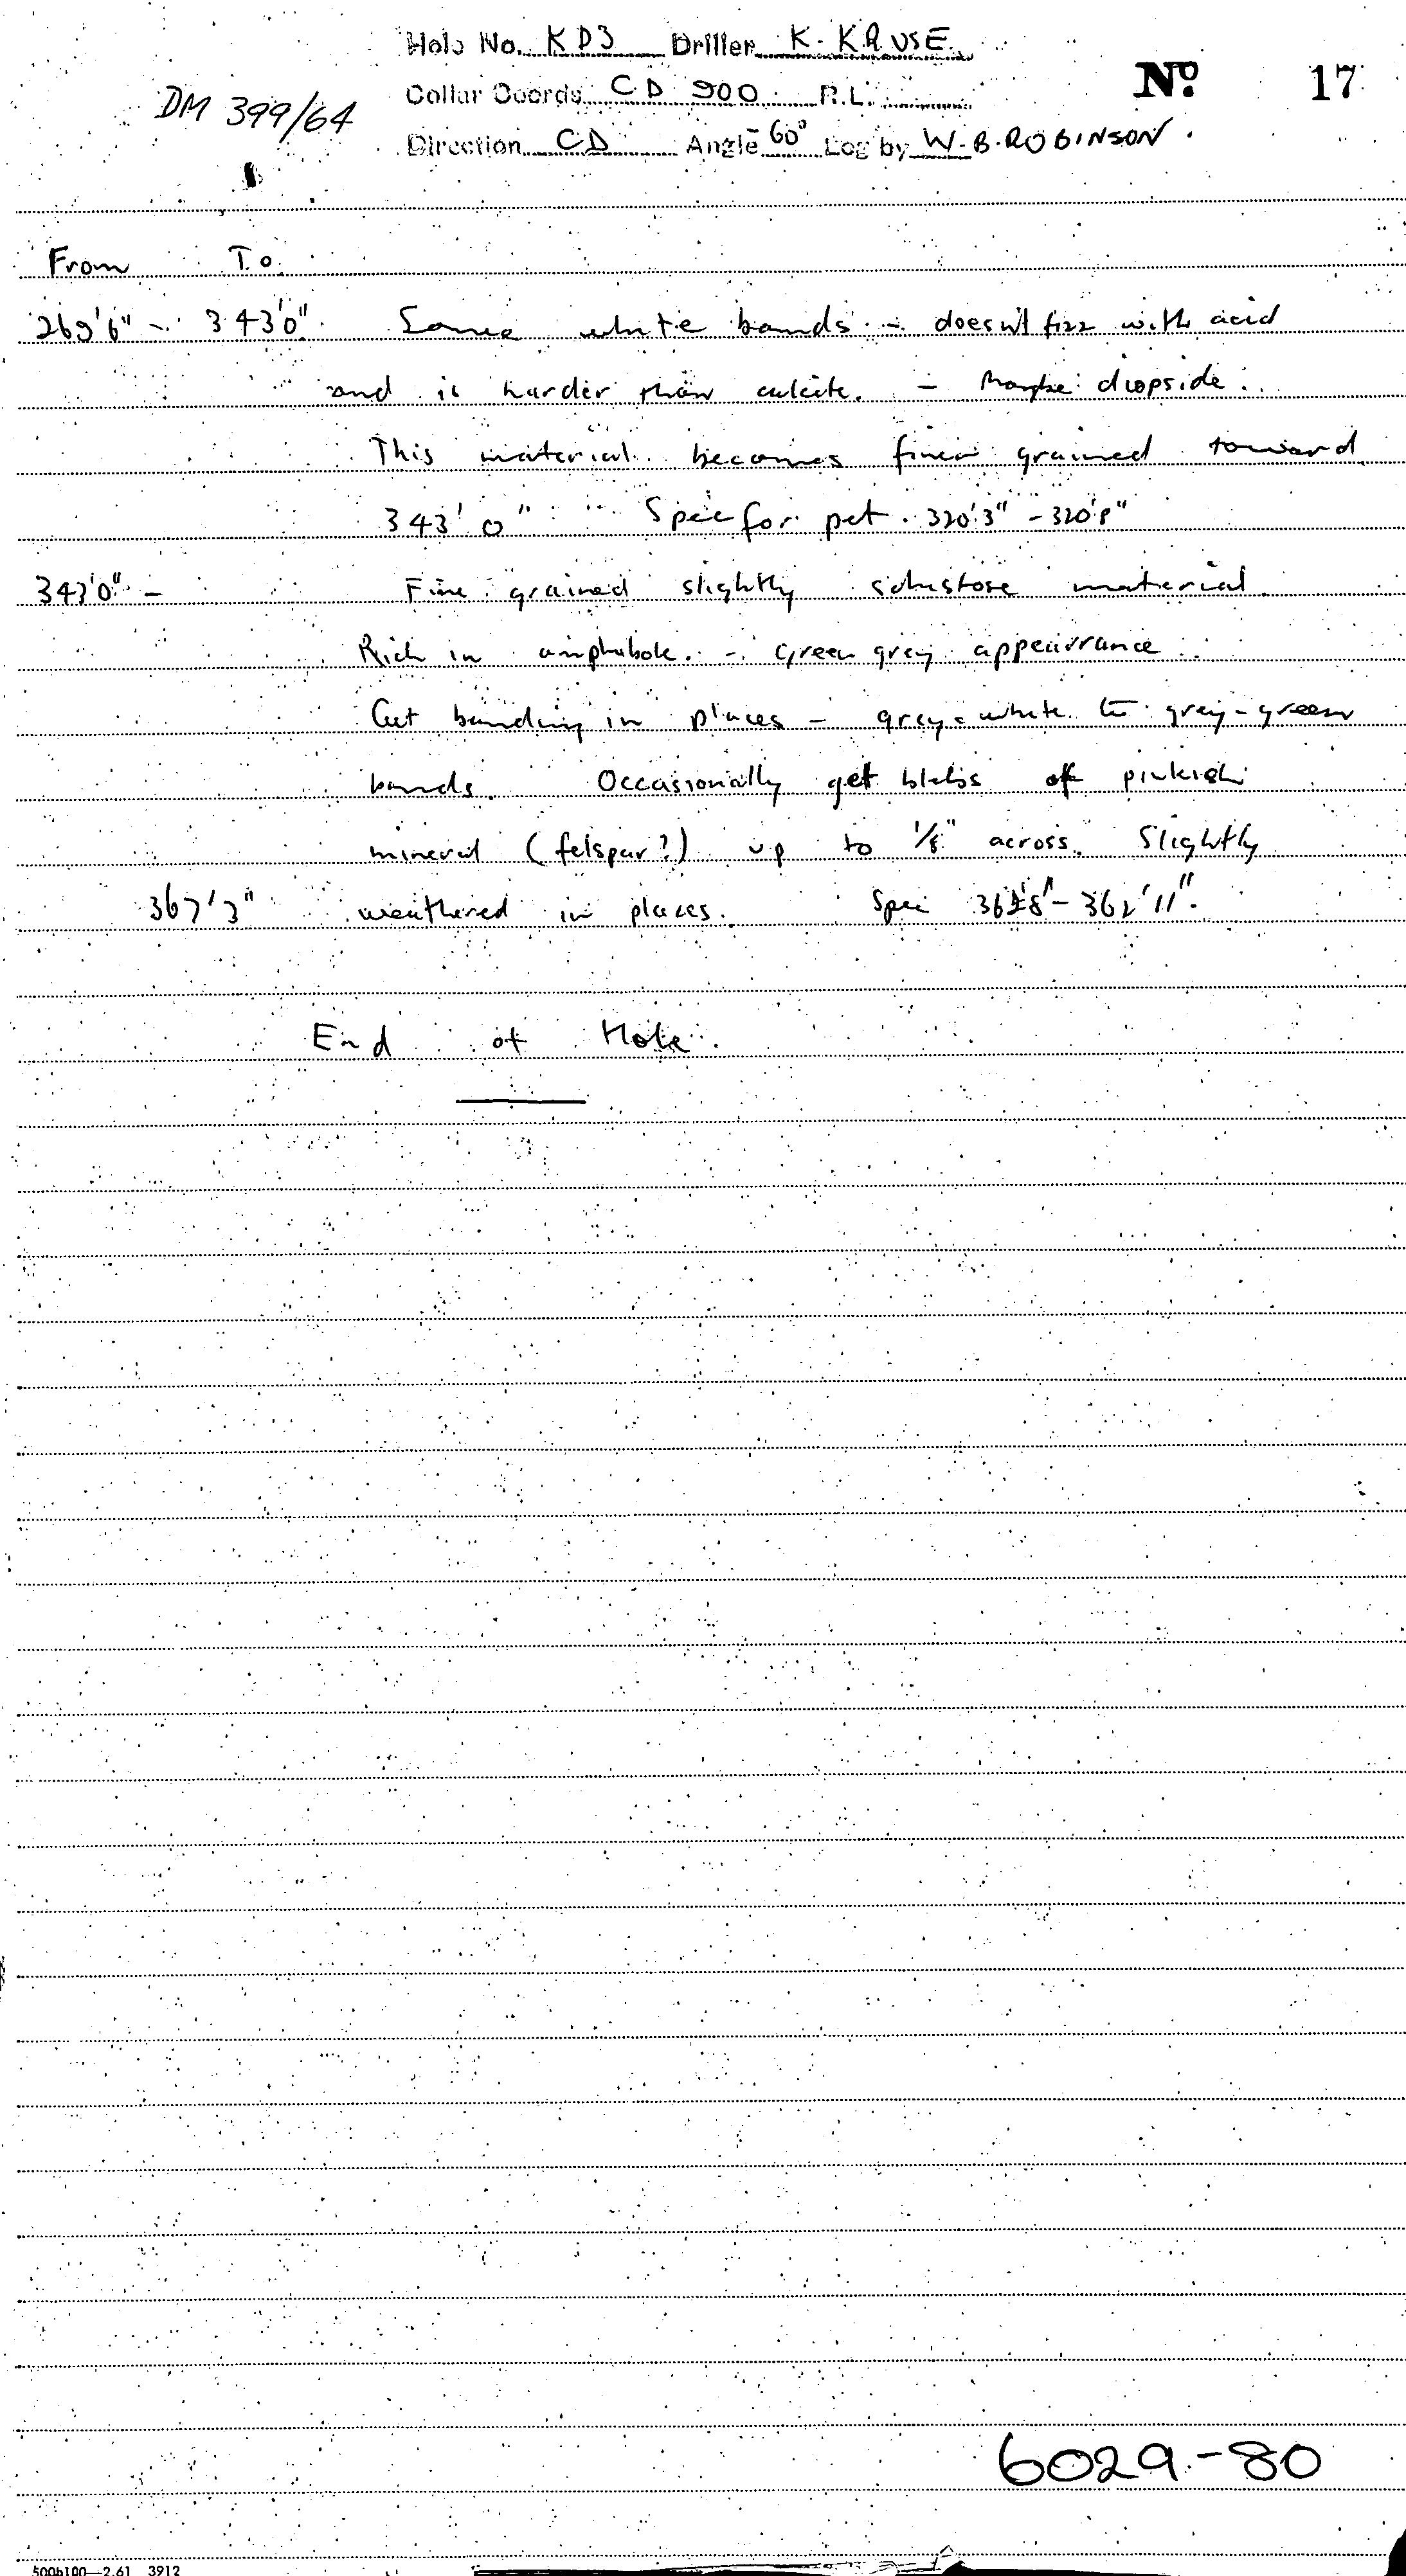 Hole No. KD3 Driller K. KRUSE
Nº 17
DM 399/64
Collar Coords CD 900 R.L.
Direction CD Angle -60° Log by W.B. ROBINSON.
From To
269'6" - 343'0" Some white bands - doesn't fizz with acid
and is harder than calcite. - Maybe diopside.
This material becomes finer grained toward
343'0" Spec for pet. 320'3" - 320'8"
343'0" - Fine grained slightly schistose material
Rich in amphibole. - Green grey appearrance
Get banding in places - grey-white to grey-green
bands. Occassionally get blebs of pinkish
mineral (felspar?) up to 1/8" across. Slightly
367'3" weathered in places. Spec 362'8" - 362'11".
End of Hole.
6029-80
500b100—2.61 3912